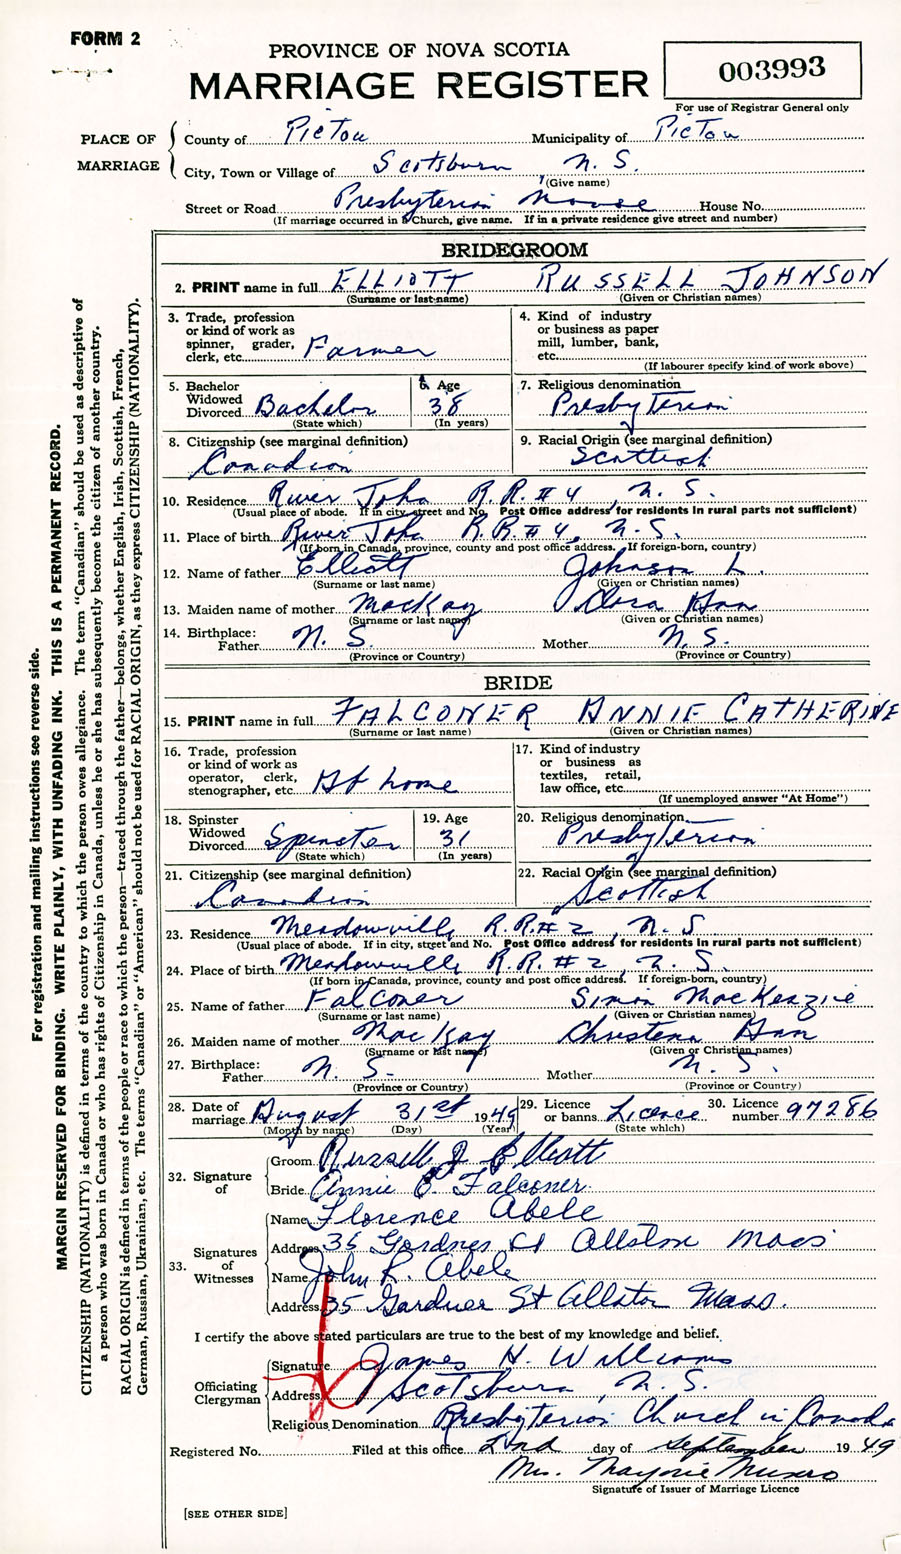 FORM 2
PROVINCE OF NOVA SCOTIA
MARRIAGE REGISTER
003993
For use of Registrar General only
PLACE OF MARRIAGE
County of Pictou Municipality of Pictou
City, Town or Village of Scotsburn N. S.
(Give name)
Street or Road Presbyterian Manse House No.
(If marriage occurred in a Church, give name. If in a private residence give street and number)
BRIDEGROOM
2. PRINT name in full ELLIOTT RUSSELL JOHNSON
(Surname or last name) (Given or Christian names)
3. Trade, profession or kind of work as spinner, grader, clerk, etc. Farmer
4. Kind of industry or business as paper mill, lumber, bank, etc.
(If labourer specify kind of work above)
5. Bachelor Widowed Divorced Bachelor
(State which)
6. Age 38
(In years)
7. Religious denomination Presbyterian
8. Citizenship (see marginal definition) Canadian
9. Racial Origin (see marginal definition) Scottish
10. Residence River John R.R. # 4, N. S.
(Usual place of abode. If in city, street and No. Post Office address for residents in rural parts not sufficient)
11. Place of birth River John R.R. # 4, N. S.
(If born in Canada, province, county and post office address. If foreign-born, country)
12. Name of father Elliott Johnson L.
(Surname or last name) (Given or Christian names)
13. Maiden name of mother MacKay Clara Ann
(Surname or last name) (Given or Christian names)
14. Birthplace: Father N. S. Mother N. S.
(Province or Country) (Province or Country)
BRIDE
15. PRINT name in full FALCONER ANNIE CATHERINE
(Surname or last name) (Given or Christian names)
16. Trade, profession or kind of work as operator, clerk, stenographer, etc. At home
17. Kind of industry or business as textiles, retail, law office, etc.
(If unemployed answer "At Home")
18. Spinster Widowed Divorced Spinster
(State which)
19. Age 31
(In years)
20. Religious denomination Presbyterian
21. Citizenship (see marginal definition) Canadian
22. Racial Origin (see marginal definition) Scottish
23. Residence Meadowville R.R. # 2, N. S
(Usual place of abode. If in city, street and No. Post Office address for residents in rural parts not sufficient)
24. Place of birth Meadowville R.R. # 2, N. S.
(If born in Canada, province, county and post office address. If foreign-born, country)
25. Name of father Falconer Simon MacKenzie
(Surname or last name) (Given or Christian names)
26. Maiden name of mother MacKay Christena Ann
(Surname or last name) (Given or Christian names)
27. Birthplace: Father N. S. Mother N. S.
(Province or Country) (Province or Country)
28. Date of marriage August 31st 1949
(Month by name) (Day) (Year)
29. Licence or banns Licence
(State which)
30. Licence number 97286
32. Signature of
Groom Russell J Elliott
Bride Annie C. Falconer
33. Signatures of Witnesses
Name Florence Abele
Address 35 Gardner St Allston Mass
Name John R. Abele
Address 35 Gardner St Allston Mass.
I certify the above stated particulars are true to the best of my knowledge and belief.
Officiating Clergyman
Signature James H. Williams
Address Scotsburn, N. S.
Religious Denomination Presbyterian Church in Canada
Registered No. Filed at this office 2nd day of September 1949
Mrs. Marjorie Munro
Signature of Issuer of Marriage Licence
[SEE OTHER SIDE]
For registration and mailing instructions see reverse side.
MARGIN RESERVED FOR BINDING. WRITE PLAINLY, WITH UNFADING INK. THIS IS A PERMANENT RECORD.
CITIZENSHIP (NATIONALITY) is defined in terms of the country to which the person owes allegiance. The term "Canadian" should be used as descriptive of
a person who was born in Canada or who has rights of Citizenship in Canada, unless he or she has subsequently become the citizen of another country.
RACIAL ORIGIN is defined in terms of the people or race to which the person—traced through the father—belongs, whether English, Irish, Scottish, French,
German, Russian, Ukrainian, etc. The terms "Canadian" or "American" should not be used for RACIAL ORIGIN, as they express CITIZENSHIP (NATIONALITY).